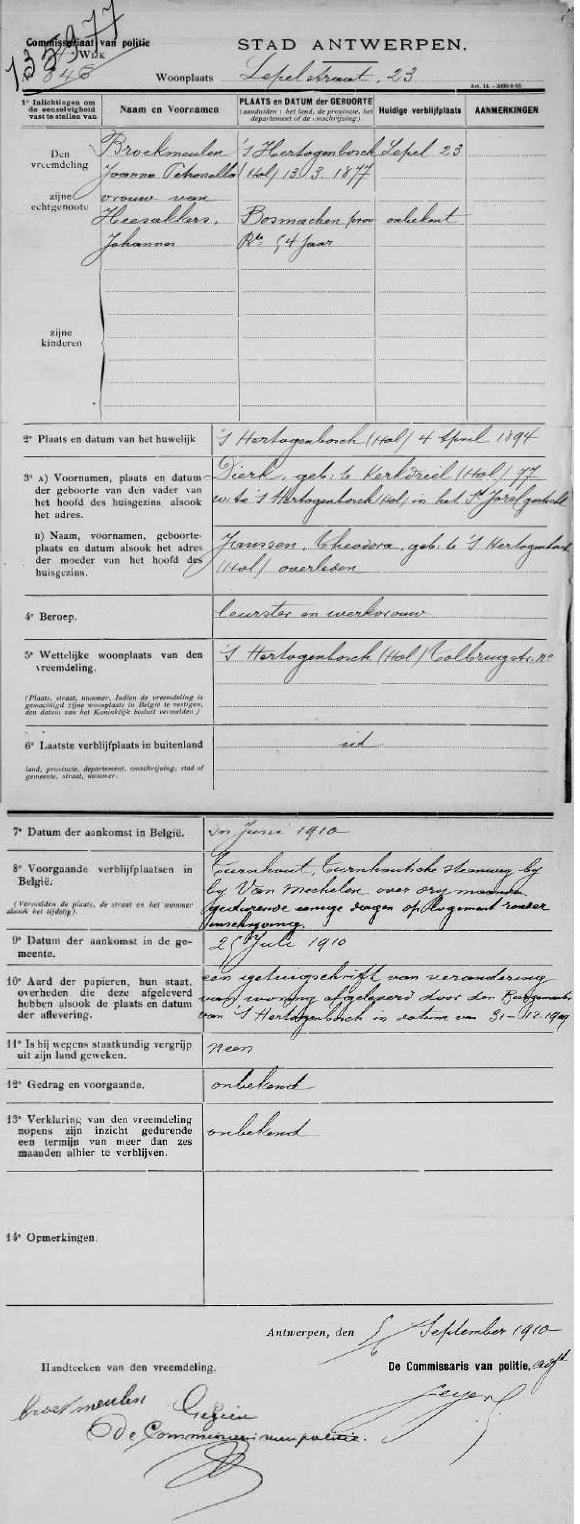 135977
Commissariaat van politie
WIJK
846
STAD ANTWERPEN.
Woonplaats Lepelstraat, 23
1° Inlichtingen om de eenzelvigheid vast te stellen van
Naam en Voornamen
PLAATS en DATUM der GEBOORTE
(aanduiden : het land, de provincie, het departement of de omschrijving).
Huidige verblijfplaats
AANMERKINGEN
Den vreemdeling
Broekmeulen 'S Hertogenbosch Lepel 23
Joanna Petronella (Hol) 13.3.1877
zijne echtgenoote
vrouw van
Heesakkers, onbekent
Johannes 54 jaar
zijne kinderen
2° Plaats en datum van het huwelijk
'S Hertogenbosch (Hol) 4 April 1894
3° A) Voornamen, plaats en datum der geboorte van den vader van het hoofd des huisgezins alsook het adres.
Dierk, geb: te Kerkdriel (Hol) 77
w: te 'S Hertogenbosch (Hol) in het St Josef gesticht
B) Naam, voornamen, geboorteplaats en datum alsook het adres der moeder van het hoofd des huisgezins.
Janssen, Theodora, geb: te 'S Hertogenbosch
(Hol) overleden
4° Beroep.
leurster en werkvrouw
5° Wettelijke woonplaats van den vreemdeling.
'S Hertogenbosch (Hol) Tolbrugstr. n°
(Plaats, straat, nummer. Indien de vreemdeling is gemachtigd zijne woonplaats in België te vestigen, den datum van het Koninklijk besluit vermelden.)
6° Laatste verblijfplaats in buitenland
id
land, provincie, departement, omschrijving, stad of gemeente, straat, nummer.
7° Datum der aankomst in België.
in Juni 1910
8° Voorgaande verblijfplaatsen in België.
(Vermelden de plaats, de straat en het nummer alsook het tijdstip).
Turnhout, Turnhoutsche steenweg by
by Van Mechelen over dry maanden
gedurende eenige dagen op logement zonder
inschryving.
9° Datum der aankomst in de gemeente.
25 Juli 1910
10° Aard der papieren, hun staat, overheden die deze afgeleverd hebben alsook de plaats en datum der aflevering.
een getuigschrift van verandering
van woning afgeleverd door den Burgemeester
van 'S Hertogenbosch in datum van 31-12.1909
11° Is hij wegens staatkundig vergrijp uit zijn land geweken.
neen
12° Gedrag en voorgaande.
onbekend
13° Verklaring van den vreemdeling nopens zijn inzicht gedurende een termijn van meer dan zes maanden alhier te verblijven.
onbekend
14° Opmerkingen.
Antwerpen, den September 1910
Handteeken van den vreemdeling.
De Commissaris van politie,
broekmeulen
Gezien
De Commissaris van politie.